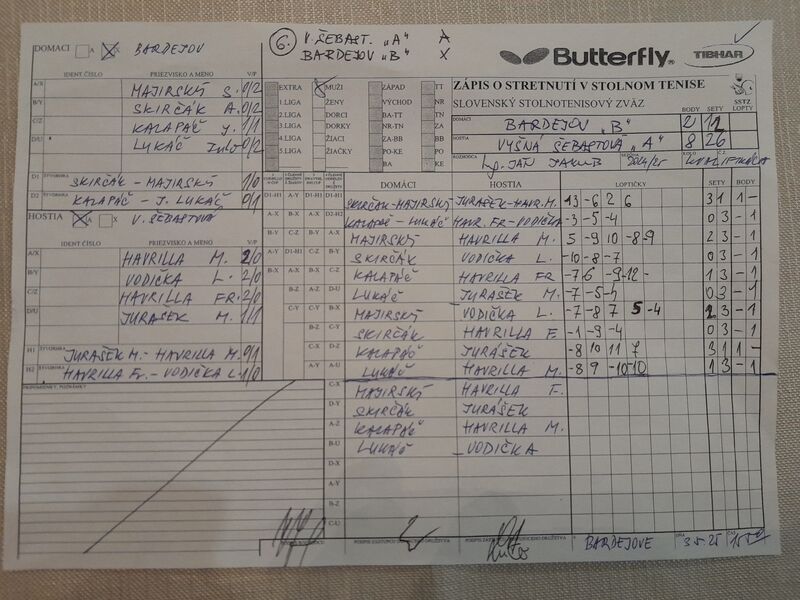 DOMÁCI A X BARDEJOV
6. V. ŠEBAST. "A" A
BARDEJOV "B" X
Butterfly TIBHAR
IDENT ČÍSLO PRIEZVISKO A MENO V/P
A/X MAJIRSKÝ S. 0/2
B/Y SKIRČÁK A. 0/2
C/Z KALAPÁČ J. 1/1
D/U LUKÁČ 0/2
D1 ŠTVORHRA SKIRČÁK - MAJIRSKÝ 1/0
D2 KALAPÁČ - J. LUKÁČ 0/1
HOSTIA A X V. ŠEBASTOVÁ
IDENT ČÍSLO PRIEZVISKO A MENO V/P
A/X HAVRILLA M. 2/0
B/Y VODIČKA L. 2/0
C/Z HAVRILLA FR. 2/0
D/U JURAŠEK M. 1/1
H1 ŠTVORHRA JURAŠEK M. - HAVRILLA M. 0/1
H2 ŠTVORHRA HAVRILLA Fr. - VODIČKA L. 1/0
PRIPOMIENKY, POZNÁMKY
EXTRA MUŽI ZÁPAD TT
1 LIGA ŽENY VÝCHOD NR
2.LIGA DORCI BA-TT TN
3.LIGA DORKY NR-TN ZA
4.LIGA ŽIACI BB-ZA PO
5.LIGA ŽIAČKY PO-KE KE
BA
ZÁPIS O STRETNUTÍ V STOLNOM TENISE
SLOVENSKÝ STOLNOTENISOVÝ ZVÄZ
BODY SETY SSTZ LOPTY
DOMÁCI BARDEJOV "B" 2 12
HOSTIA VYŠNÁ ŠEBASTOVÁ "A" 8 26
ROZHODCA JÁN JAKUB 2024/25 KVALIFIKÁCIA
DOMÁCI HOSTIA LOPTIČKY SETY BODY
SKIRČÁK-MAJIRSKÝ JURAŠEK-HAVR.M. 13 -6 2 6 3 1 1 -
KALAPÁČ - LUKÁČ HAVR. FR-VODIČKA -3 -5 -4 0 3 - 1
MAJIRSKÝ HAVRILLA M. 5 -9 10 -8 -9 2 3 - 1
SKIRČÁK VODIČKA L. -10 -8 -7 0 3 - 1
KALAPÁČ HAVRILLA FR -7 6 -9 -12 - 1 3 - 1
LUKÁČ JURAŠEK M. -7 -5 -5 0 3 - 1
MAJIRSKÝ VODIČKA L. -7 -8 7 5 -4 2 3 - 1
SKIRČÁK HAVRILLA F. -1 -9 -4 0 3 - 1
KALAPÁČ JURÁŠEK -8 10 11 7 3 1 1 -
LUKÁČ HAVRILLA M. -8 9 -10 -10 1 3 - 1
C-X MAJIRSKÝ HAVRILLA F.
D-Y SKIRČÁK JURÁŠEK
A-Z KALAPÁČ HAVRILLA M.
B-U LUKÁČ VODIČKA
D-X
A-Y
B-Z
C-U
BARDEJOVE DŇA 3.5.25